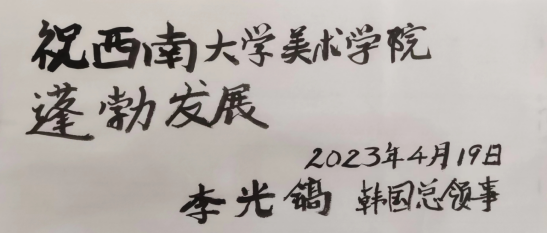 祝西南大学美术学院
蓬勃发展
2023年4月19日
李光镐 韩国总领事